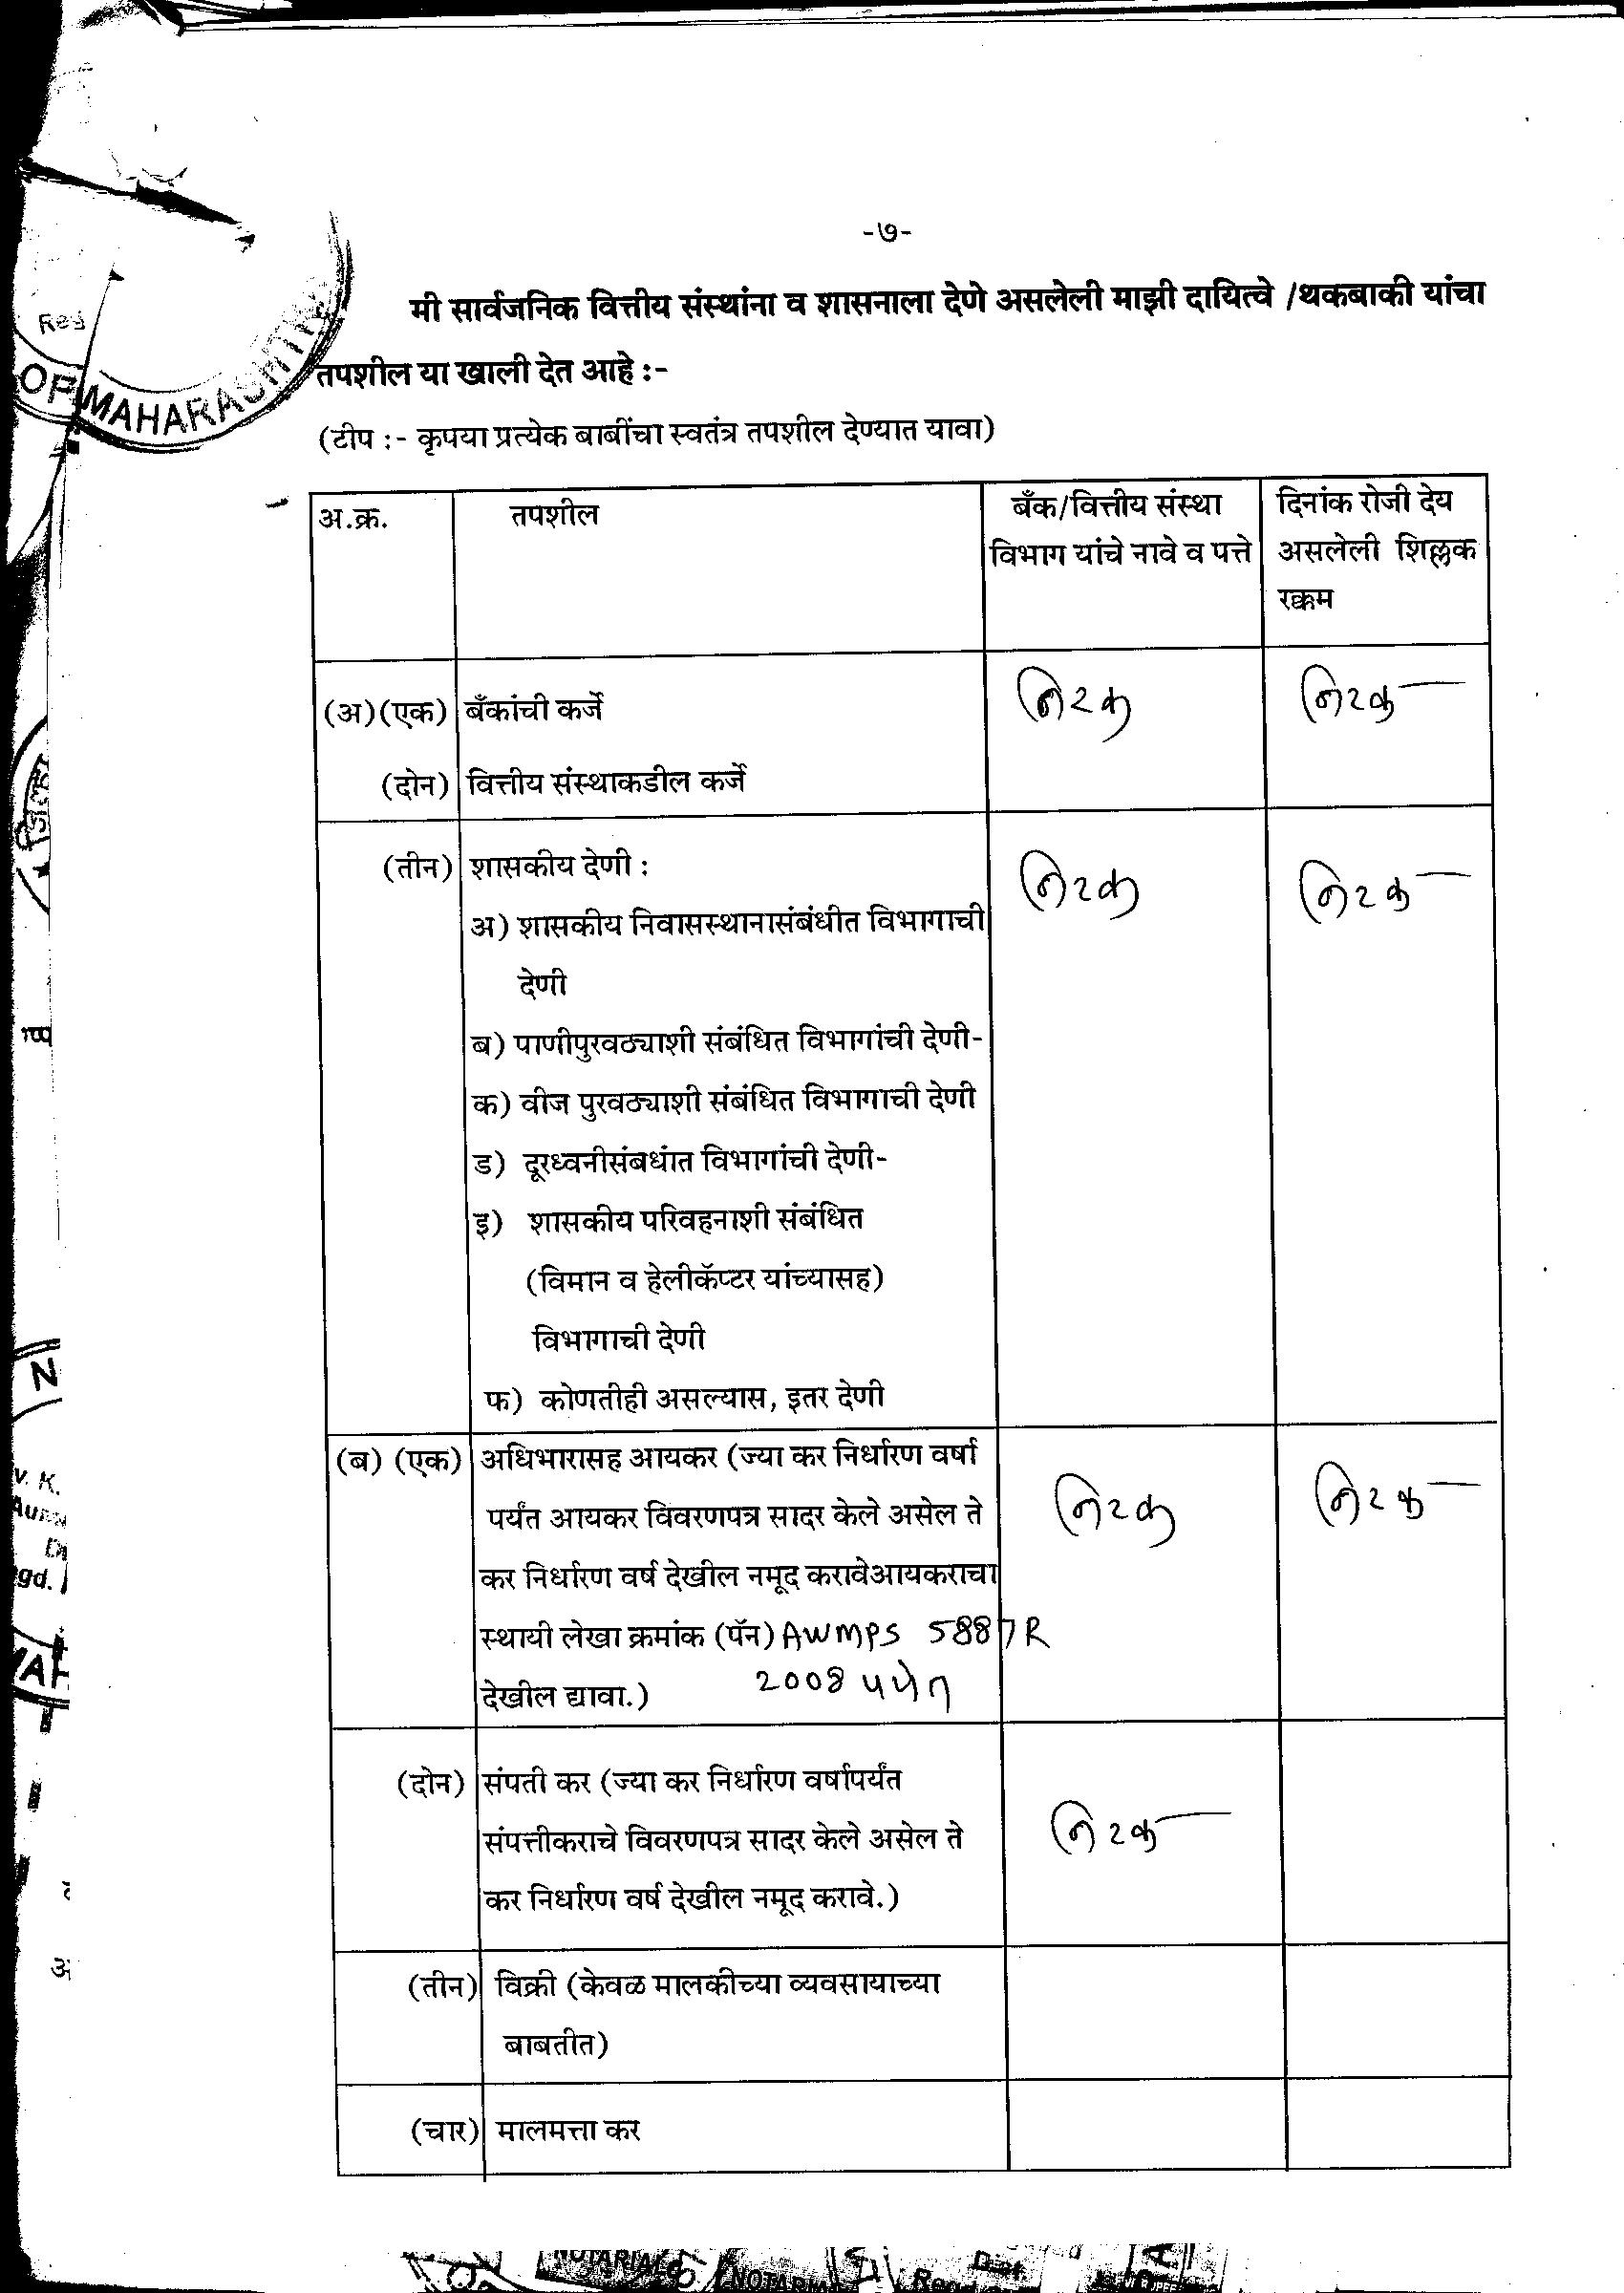 -७-
मी सार्वजनिक वित्तीय संस्थांना व शासनाला देणे असलेली माझी दायित्वे /थकबाकी यांचा
तपशील या खाली देत आहे :-
(टीप :- कृपया प्रत्येक बाबींचा स्वतंत्र तपशील देण्यात यावा)
OF MAHARASHTRA
अ.क्र. तपशील बँक/वित्तीय संस्था विभाग यांचे नावे व पत्ते दिनांक रोजी देय असलेली शिल्लक रक्कम
(अ)(एक) बँकांची कर्जे निरंक निरंक
(दोन) वित्तीय संस्थाकडील कर्जे
(तीन) शासकीय देणी : निरंक निरंक
अ) शासकीय निवासस्थानासंबंधीत विभागाची
देणी
ब) पाणीपुरवठ्याशी संबंधित विभागांची देणी-
क) वीज पुरवठ्याशी संबंधित विभागाची देणी
ड) दूरध्वनीसंबधांत विभागांची देणी-
इ) शासकीय परिवहनाशी संबंधित
(विमान व हेलीकॅप्टर यांच्यासह)
विभागाची देणी
फ) कोणतीही असल्यास, इतर देणी
(ब) (एक) अधिभारासह आयकर (ज्या कर निर्धारण वर्षा
पर्यंत आयकर विवरणपत्र सादर केले असेल ते निरंक निरंक
कर निर्धारण वर्ष देखील नमूद करावेआयकराचा
स्थायी लेखा क्रमांक (पॅन) AWMPS 5887R
देखील द्यावा.) 2008 पर्यंत
(दोन) संपती कर (ज्या कर निर्धारण वर्षापर्यंत
संपत्तीकराचे विवरणपत्र सादर केले असेल ते निरंक
कर निर्धारण वर्ष देखील नमूद करावे.)
(तीन) विक्री (केवळ मालकीच्या व्यवसायाच्या
बाबतीत)
(चार) मालमत्ता कर
NOTARIAL